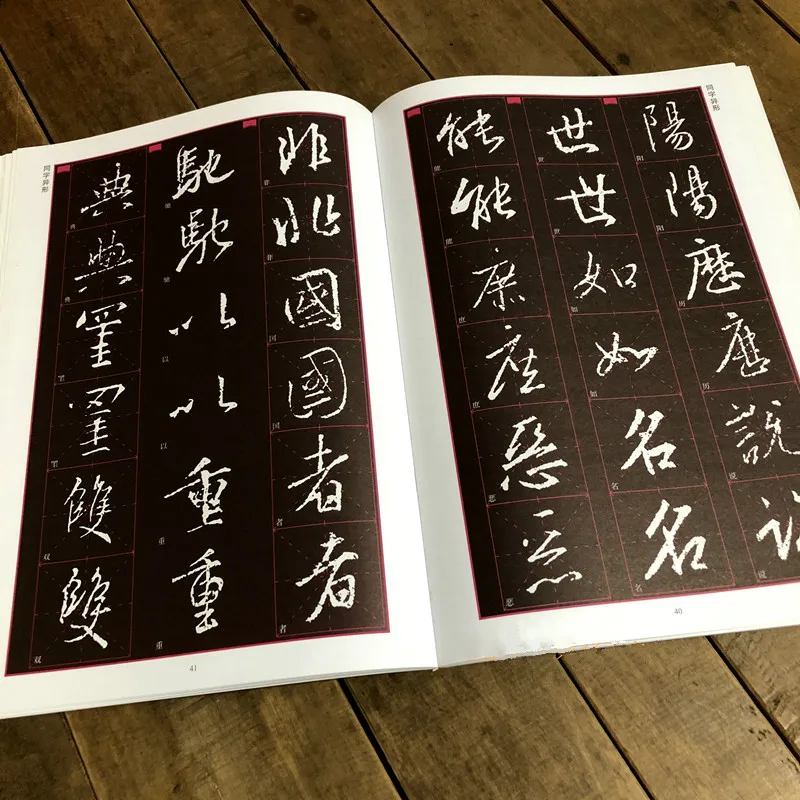 同字异形
陽 阳 陽 阳 歷 历 歷 历 說 说 說 说
世 世 世 世 如 如 如 如 名 名 名 名
能 能 能 能 庶 庶 庶 庶 惡 恶 惡 恶
40
非 非 非 非 國 国 國 国 者 者 者 者
馳 驰 馳 驰 以 以 以 以 重 重 重 重
典 典 典 典 雙 双 雙 双
同字异形
41